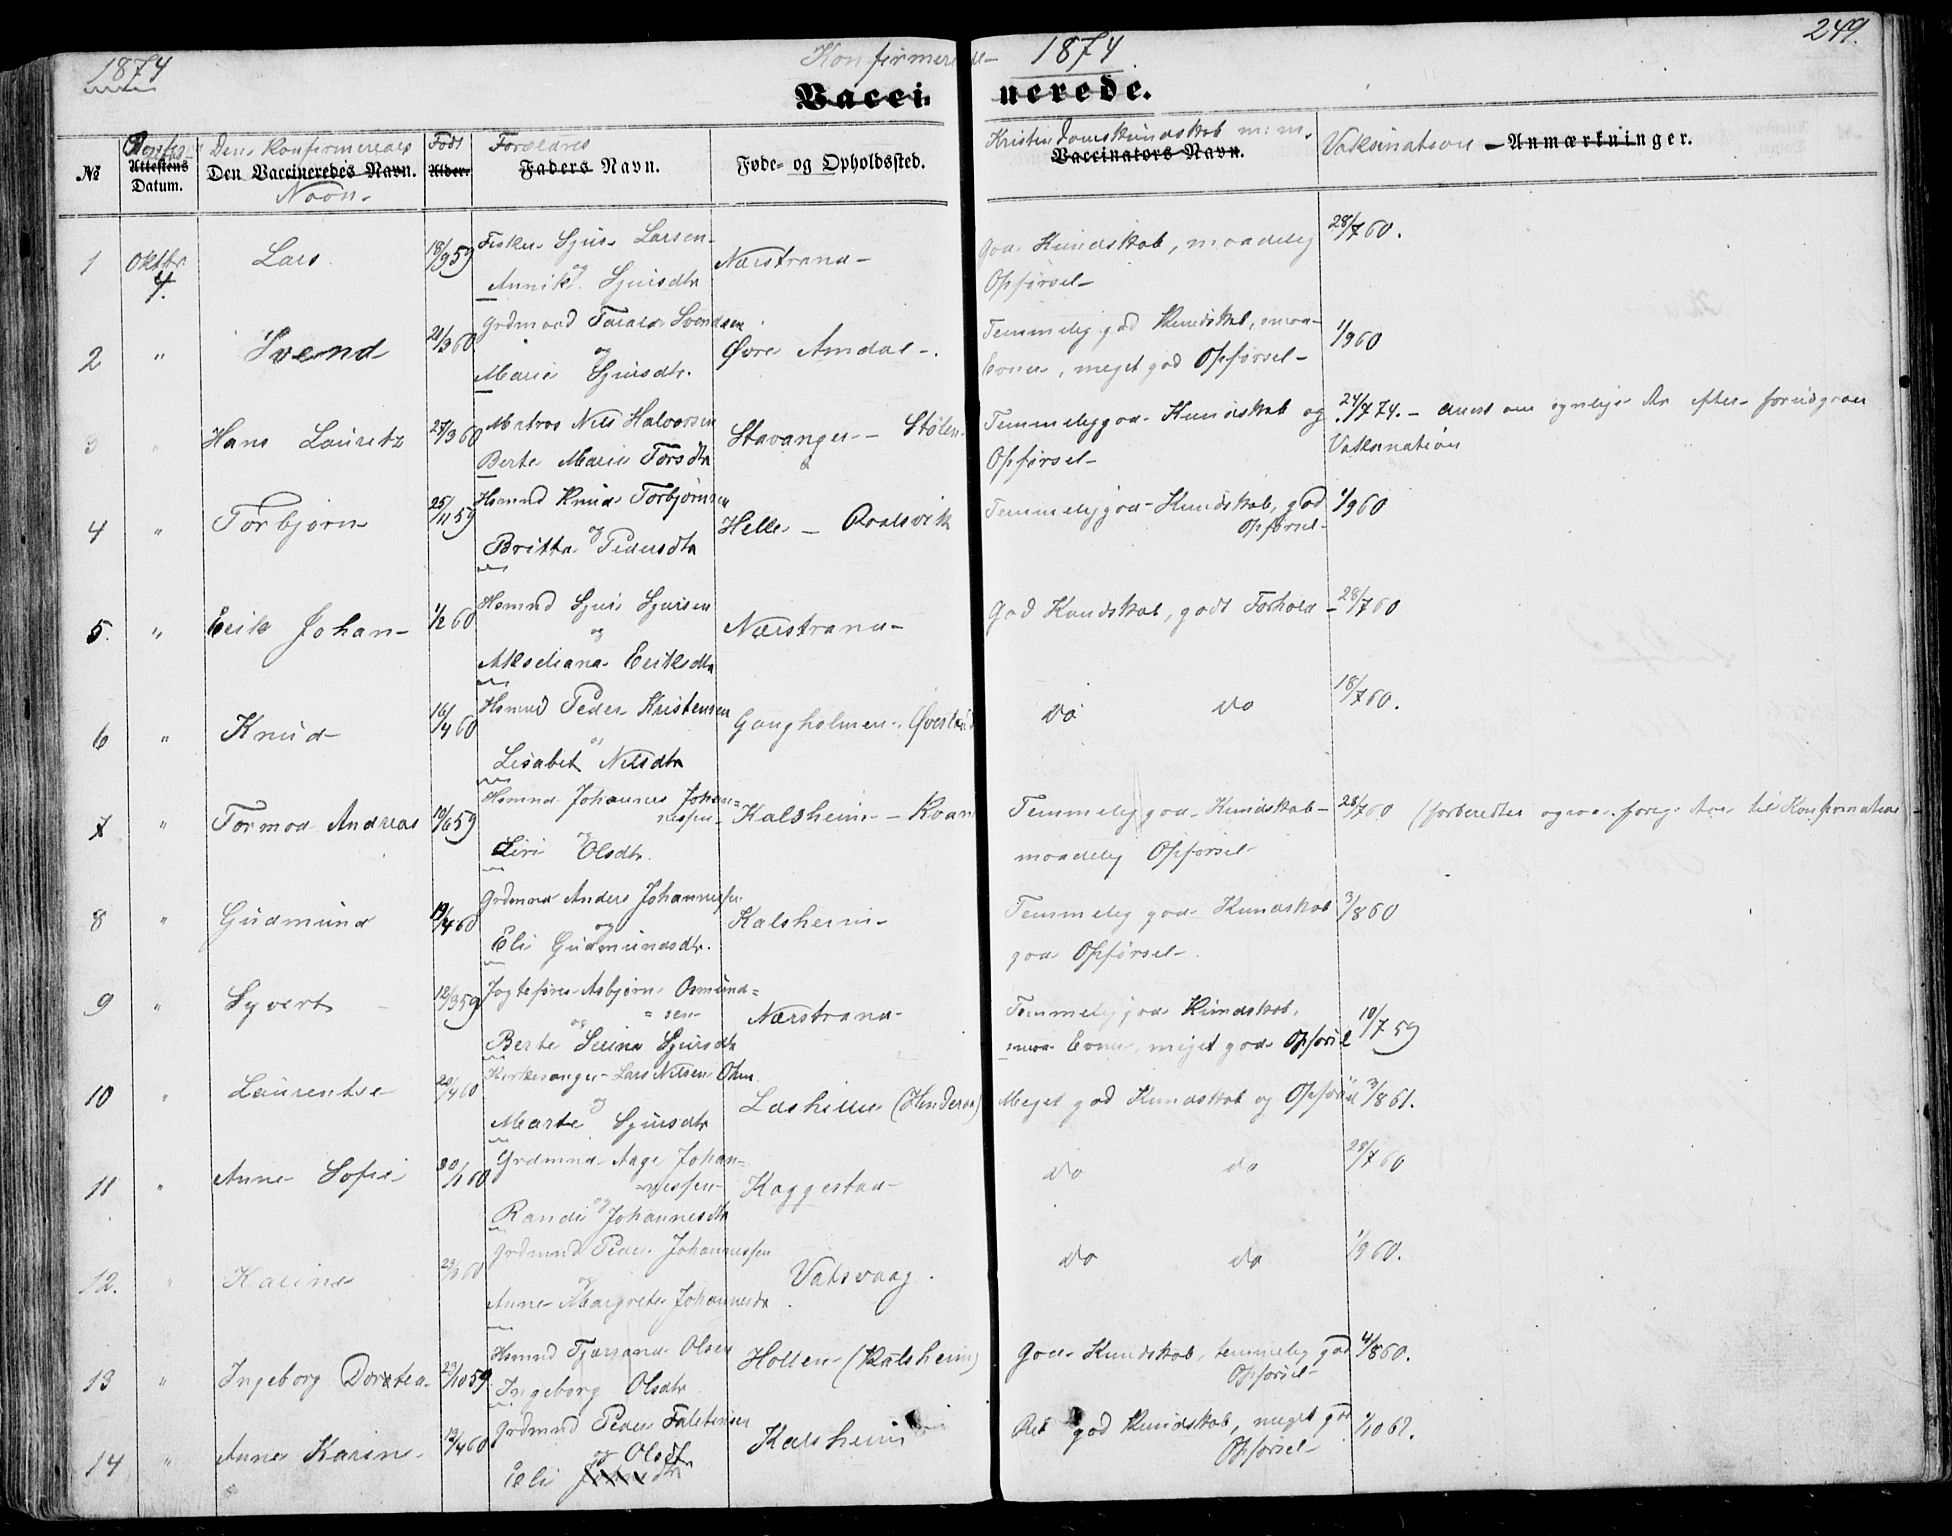 1874
Konfirmerede
1874.
249.
Vaccinerede.
№
Attestens
Datum.
Den Konfirmeredes
Den Vaccineredes Navn.
Navn
Født
Alder.
Forældres
Faders Navn.
Føde- og Opholdssted.
Kristendomskundskab m: m.
Vaccinators Navn.
Vaksination
Anmærkninger.
1 Oktbr 4. Lars 18/9 59 Fisker Sjur Larsen Nærstrand God Kundskab, maadelig 28/7 60.
og
Sjursdtr Opførsel
2 " Svend Svendsen Øvre Amdal Temmelig god Kundskab, smaa 1/9 60
og
Marie Sjursdtr. Evner, meget god Opførsel
3 " Hans Lauritz 27/3 60 Matros Nils Halvorsen Stavanger Temmelig god Kundskab og 24/7 74.
Berte Marie Torsdtr Opførsel Vaksination
4 " Torbjørn 25/11 59 Hsmnd Knud Torbjørnsen Helle Temmelig god Kundskab, god 1/9 60
og Opførsel
Britta Pedersdtr
5. " Erik Johan 1/2 60 Hsmnd Sjur Sjursen Nærstrand God Kundskab, godt Forhold 28/7 60
og
Eriksdtr
6 " Knud 16/4 60 Hsmnd Peder Kristensen Gangholmen do do 18/7 60.
og
Lisabet Nilsdtr
7 " Tormod Andreas 10/6 59 Hsmnd Johannes Johannessen Kalsheim Temmelig god Kundskab 28/7 60 (forberedtes ogsaa foreg. Aar til Konfirmation
og
Siri Olsdtr. maadelig Opførsel
8 " Gudmund 19/4 60 Grdmnd Anders Johannessen Kalsheim Temmelig god Kundskab 3/8 60
og
Eli Gudmundsdtr. god Opførsel
9 " Syvert 12/3 59 Jagtefører Asbjørn Osmundsen Nærstrand Temmelig god Kundskab, 10/7 59
og
Berte Serina Sjursdtr smaa Evner, meget god Opførsel
10 " Laurentse 22/4 60 Kirkesanger Lars Nilsen Meget god Kundskab og Opførsel 3/8 61.
og
Marte Sjursdtr
11 " Anne Sofie 30/1 60 Grdmnd Aage Johannessen Kaggestad do do 28/7 60
og
Randi Johannesdtr
12. " Karine 23/3 60 Grdmnd Peder Johannessen Vatsvaag. do do 1/9 60.
og
Anne Margrete Johannesdtr
13 " Ingeborg Dortea 23/10 59 Hsmnd Tjærand Olsen (Kalsheim) God Kundskab, temmelig god 4/8 60.
Ingeborg Olsdtr Opførsel
14 " Anne Karine 13/4 60 Grdmnd Peder Kalsheim Ret god Kundskab, meget god 1/10 62.
og Olsdtr Opførsel
Eli